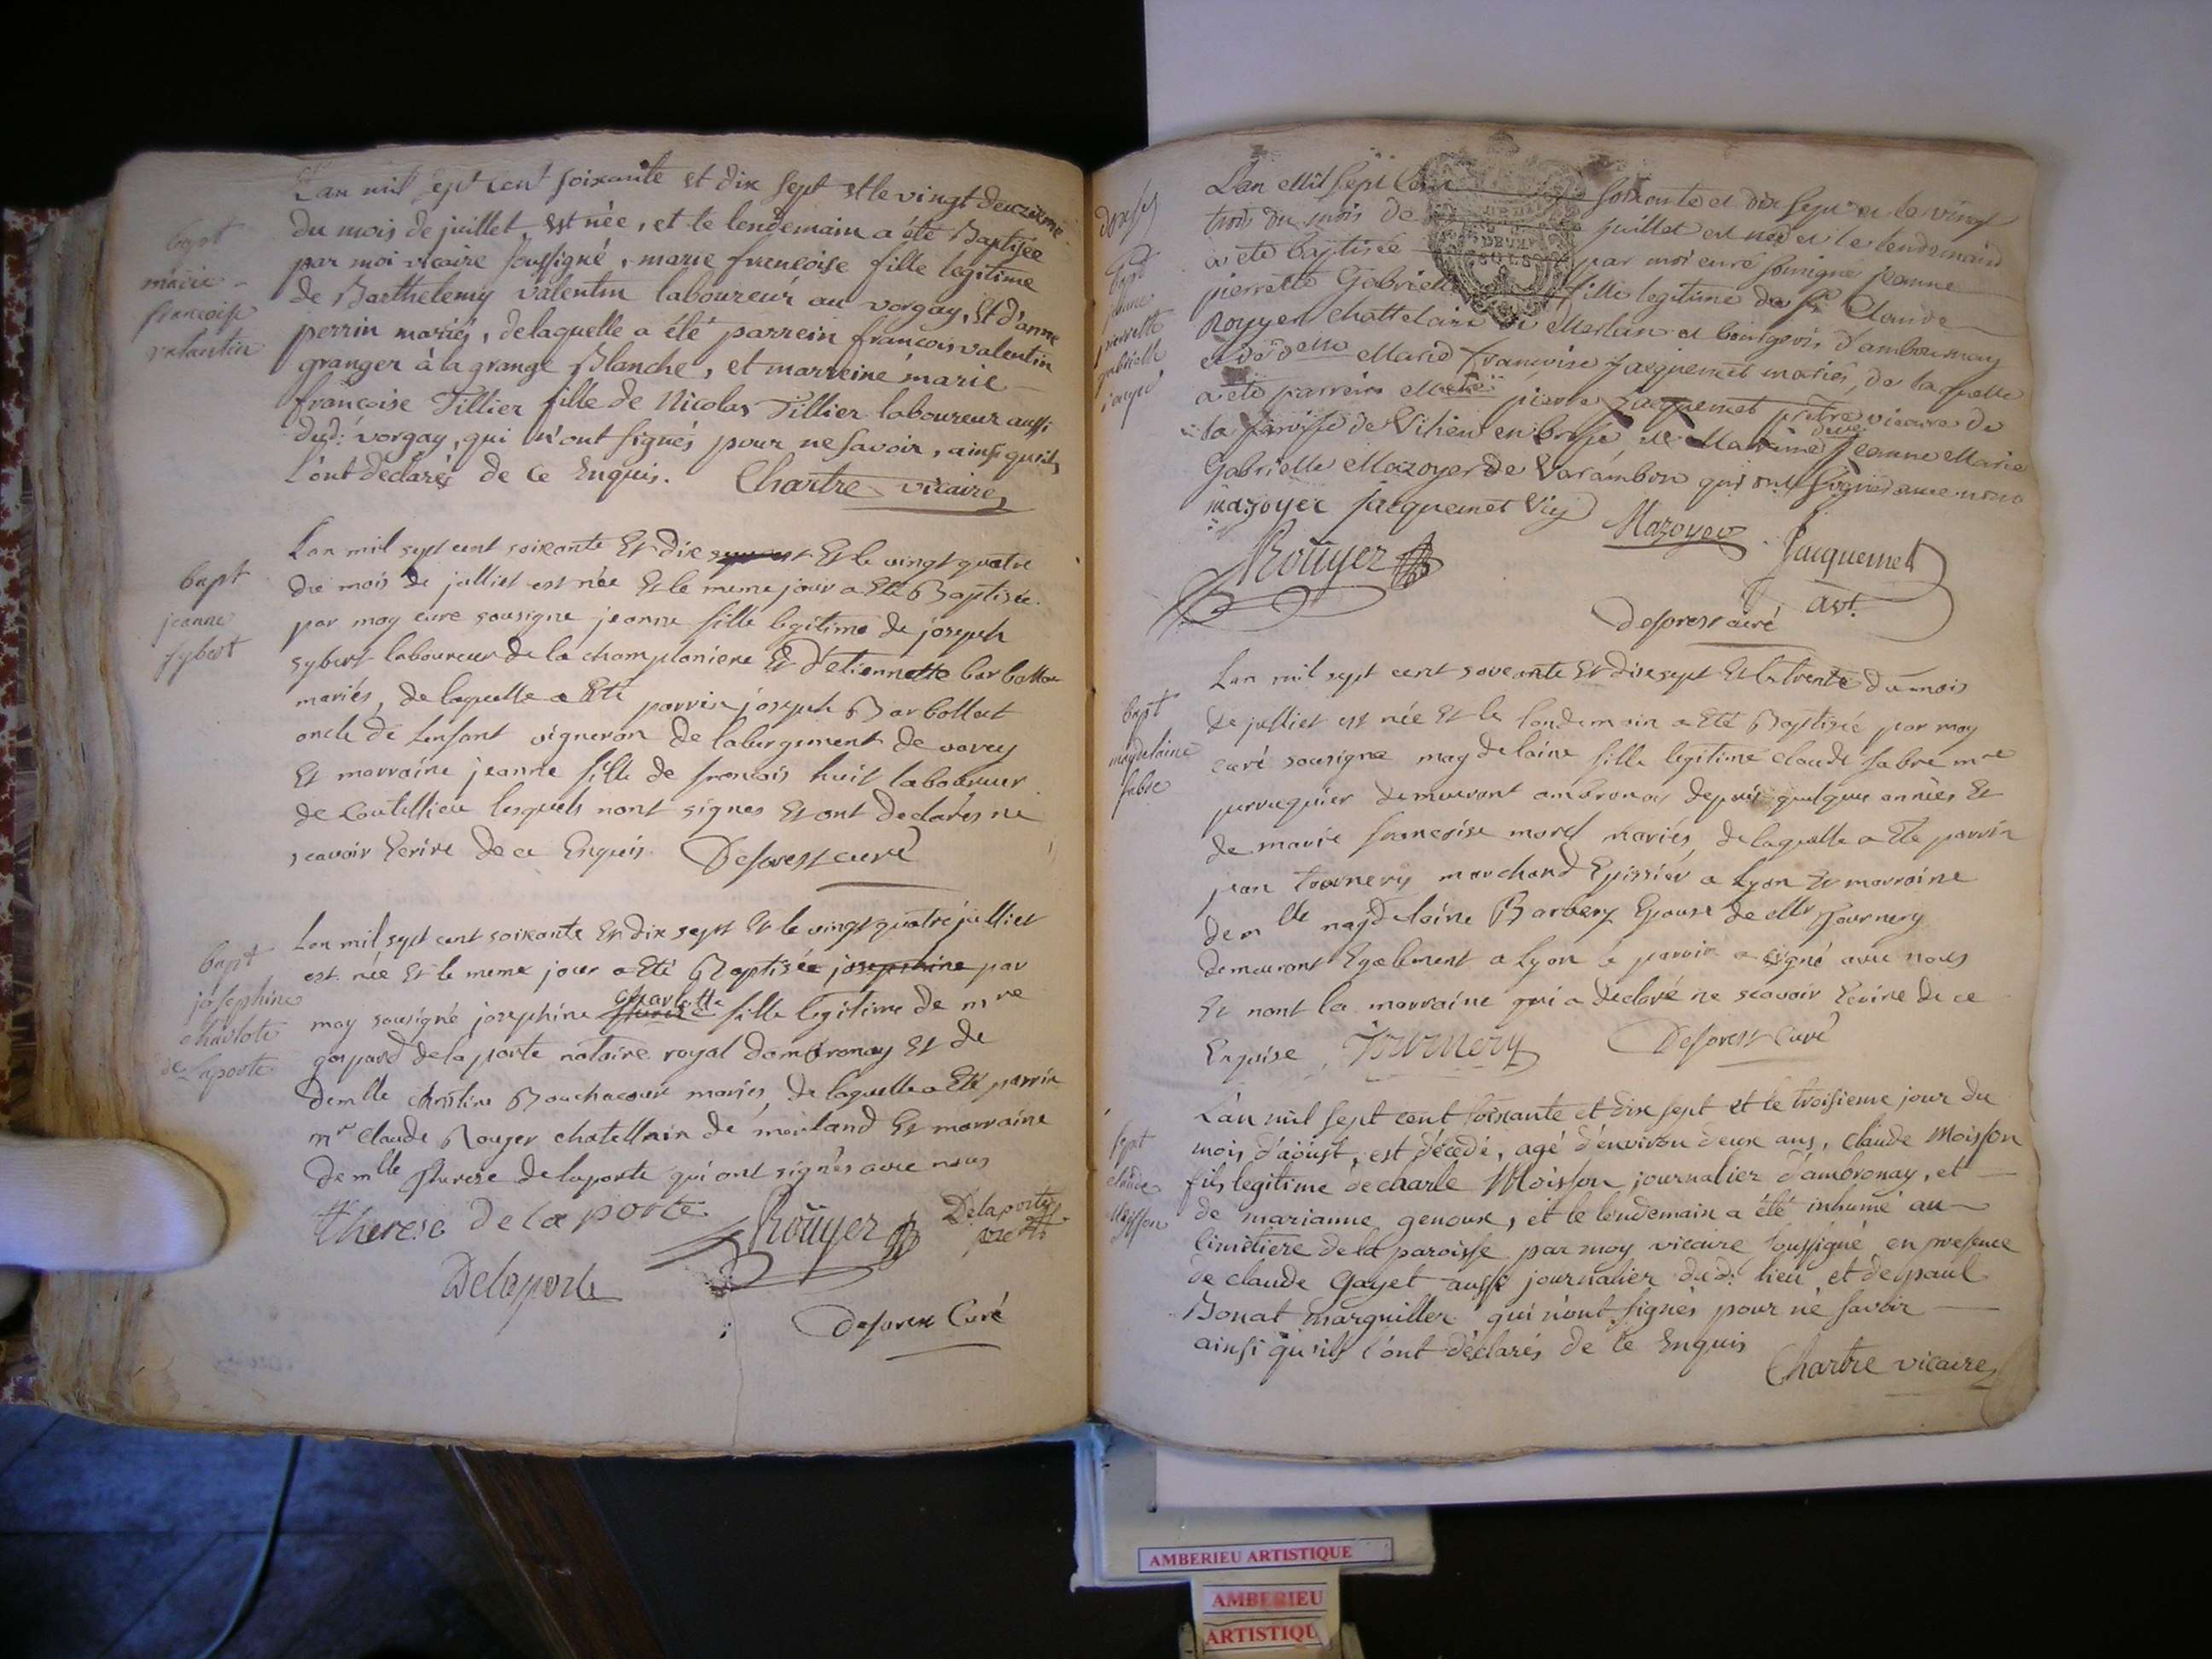 L'an mil sept cent soixante et dix sept et le vingt deuxieme
du mois de juillet, est née, et le lendemain a été Baptisée
par moi vicaire soussigné, marie françoise fille legitime
de Barthelemy valentin laboureur au vorgay, et d'anne
perrin mariés, delaquelle a été parrein françois valentin
granger à la grange Blanche, et marreine marie
françoise Tillier fille de Nicolas Tillier laboureur aussi
dud: vorgay, qui n'ont signés pour ne savoir, ainsi qu'ils
l'ont declarés de ce Enquis. Chartre vicaire
bapt
marie
françoise
valentin
Lan mil sept cent soixante Et dix sept Et le vingt quatre
du mois de julliet est née Et le meme jour a Eté Baptisée
par moy curé sousigne jeanne fille legitime de joseph
sybert laboureur de la championiere Et d'etiennette barbollat
mariés, de laquelle a Eté parrin joseph Barbollat
oncle de lenfant vigneron de labergement de varey
Et marraine jeanne fille de francois huit laboureur
de Coutellieu lesquels nont signes Et ont declarés ne
scavoir Ecrire de ce Enquis. Deforest curé
bapt
jeanne
sybert
Lan mil sept cent soixante Et dix sept Et le vingt quatre julliet
est née Et le meme jour a Eté Baptisée josephine par
moy sousigné josephine charlotte fille legitime de mre
gaspard delaporte notaire royal dambronay Et de
demlle christine Bouchacour mariés, de laquelle a Eté parrin
mr claude Rouyer chatellain de merland Et marraine
demlle therese delaporte qui ont signés avec nous
therese Delaporte Roüyer Delaporte
Delaporte
deforest Curé
bapt
josephine
charlote
de laporte
L'an Mil sept Cent soixante et dix sept et le vingt
trois du mois de juillet est née et le lendemain
a eté baptisée par moi curé soussigné jeanne
pierrette Gabrielle fille legitime de sr. Claude
Rouyer chattelain de Merlan et bourgeois d'ambournay
et de delle Marie françoise jacquemet mariés, de laquelle
a eté parrein pierre jacquemet prêtre vicaire de
la paroisse de Vilieu en bresse, et Marraine jeanne Marie
Gabrielle Mazoyer de Varambon qui ont signés avec nous
mazoyer jacquemet Vic
Mazoyer Jacquemet
Roüyer
avt.
deforest curé
bapt
jeanne
pierrette
gabrielle
Lan mil sept cent soxeante Et dixsept Et le trente du mois
de julliet est née Et le lendemain a Eté Baptisée par moy
curé sousigne magdelaine fille legitime claude fabre mre
perruquier demeurant ambronay depuis quelques années Et
de marie francoise morel mariés, de laquelle a Eté parrin
jean tournery marchand Epissier a Lyon Et marraine
demlle magdelaine Barbery Epouse de Mr Tournery
demeurant Egalement a Lyon le parrin a signé avec nous
Et nont la marraine qui a declaré ne scavoir Ecrire de ce
Enquise, Tournery Deforest Curé
bapt
magdelaine
fabre
L'an mil sept cent soixante et dix sept et le troisieme jour du
mois d'aoüst, est décedé, agé d'environ deux ans, Claude Moisson
fils legitime de charle Moisson journalier d'ambronay, et
de marianne genoux, et le lendemain a été inhumé au
Cimetiere de la paroisse par moy vicaire soussigné en presence
de claude Gayet aussi journalier dud: lieu et de paul
Bonat marguiller qui n'ont signés pour ne savoir
ainsi qu'ils l'ont déclarés de ce Enquis
Chartre vicaire
sept
claude
Moisson
AMBERIEU ARTISTIQUE
AMBERIEU
ARTISTIQU